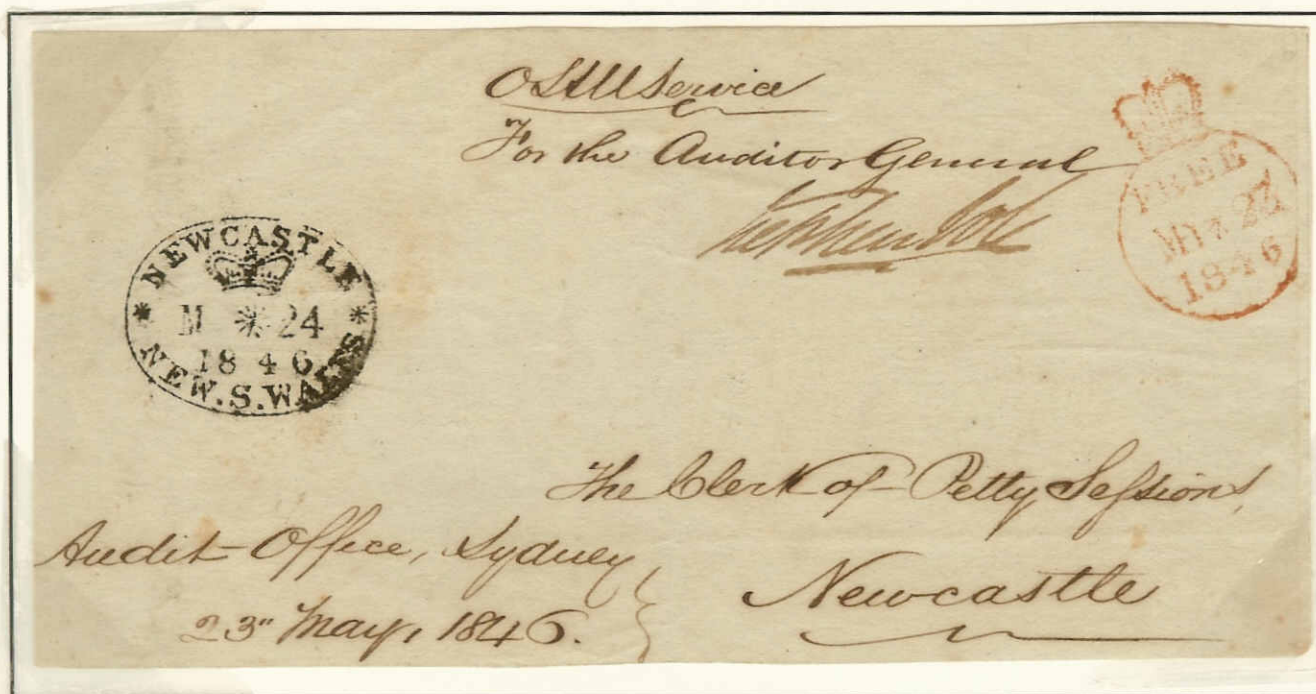 O.H.M.Service
For the Auditor General
FREE
MY 
1846
NEWCASTLE
M * 24
1846
NEW.S.WALES
The Clerk of Petty Sessions,
Newcastle
Audit Office, Sydney
23" May, 1846.